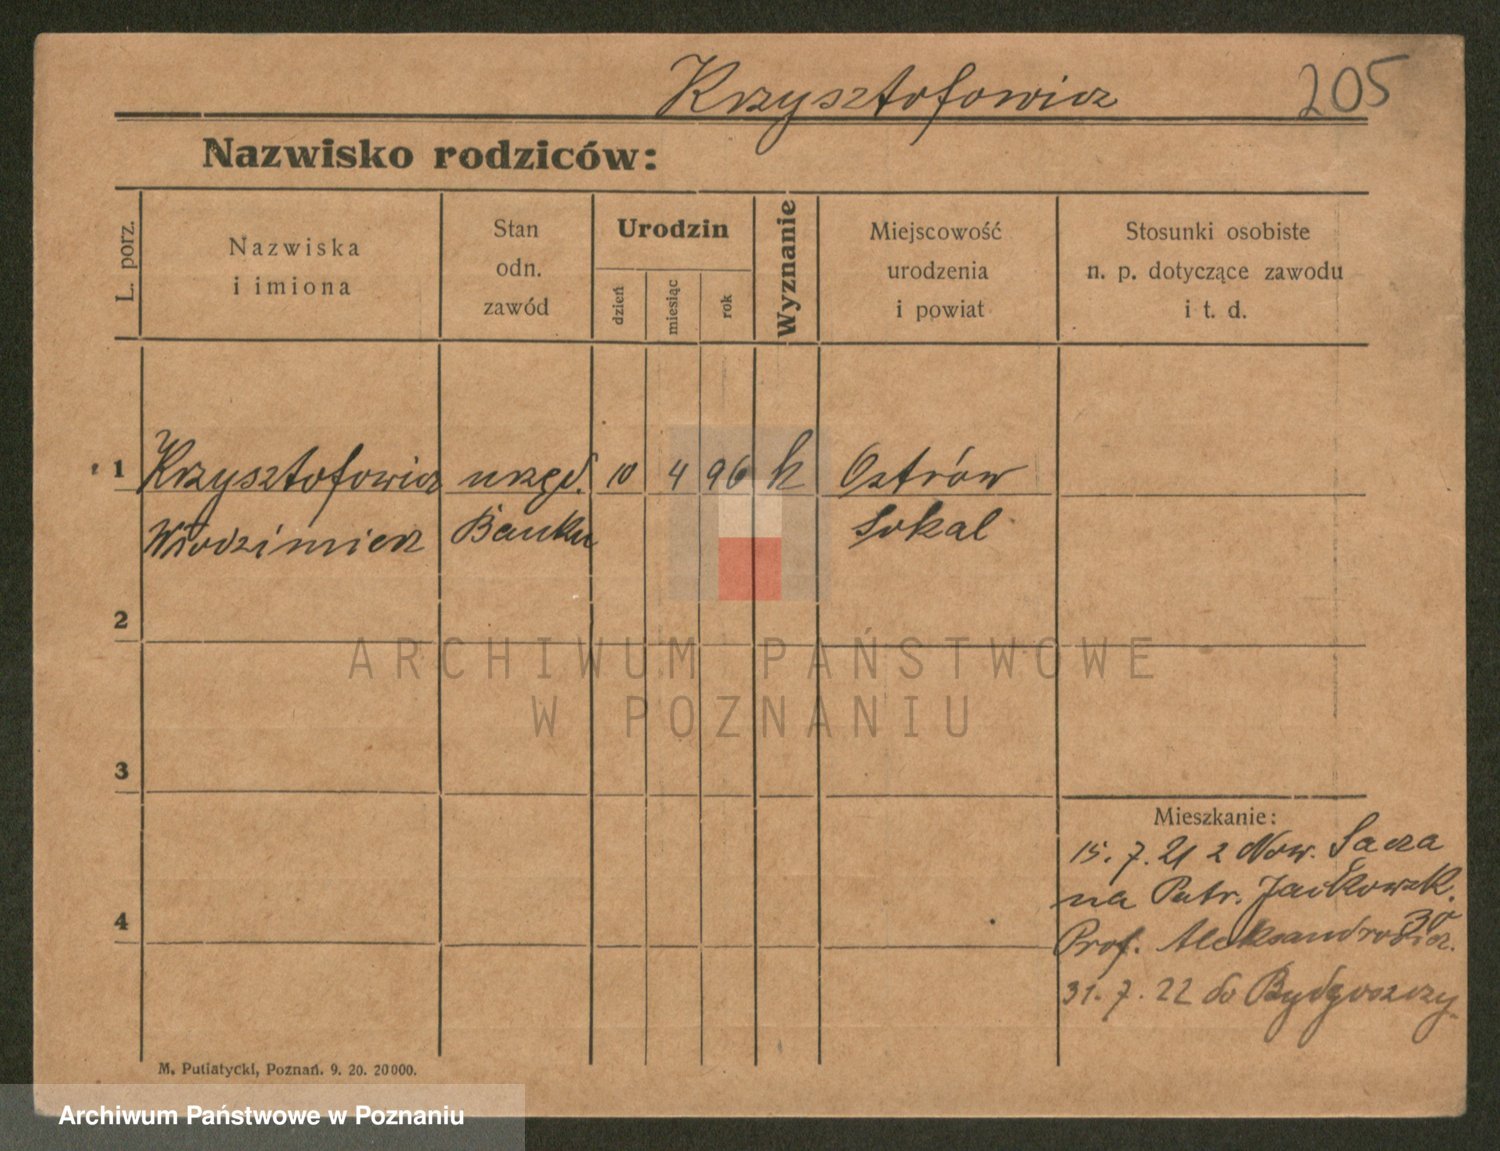 Krzysztofowicz 205
Nazwisko rodziców:
L. porz.
Nazwiska
i imiona
Stan
odn.
zawód
Urodzin
dzień
miesiąc
rok
Wyznanie
Miejscowość
urodzenia
i powiat
Stosunki osobiste
n. p. dotyczące zawodu
i t. d.
1 Krzysztofowicz urzęd. 10 4 96 k Ostrów
Włodzimierz Banku Sokal
2
3
4
Mieszkanie:
15. 7. 21 z Now. Sącza
na Patr. Jackowsk.
30
Prof. Aleksandrowicz.
31. 7. 22 do Bydgoszczy
M. Putiatycki, Poznań. 9. 20. 20000.
ARCHIWUM PAŃSTWOWE
W POZNANIU
Archiwum Państwowe w Poznaniu